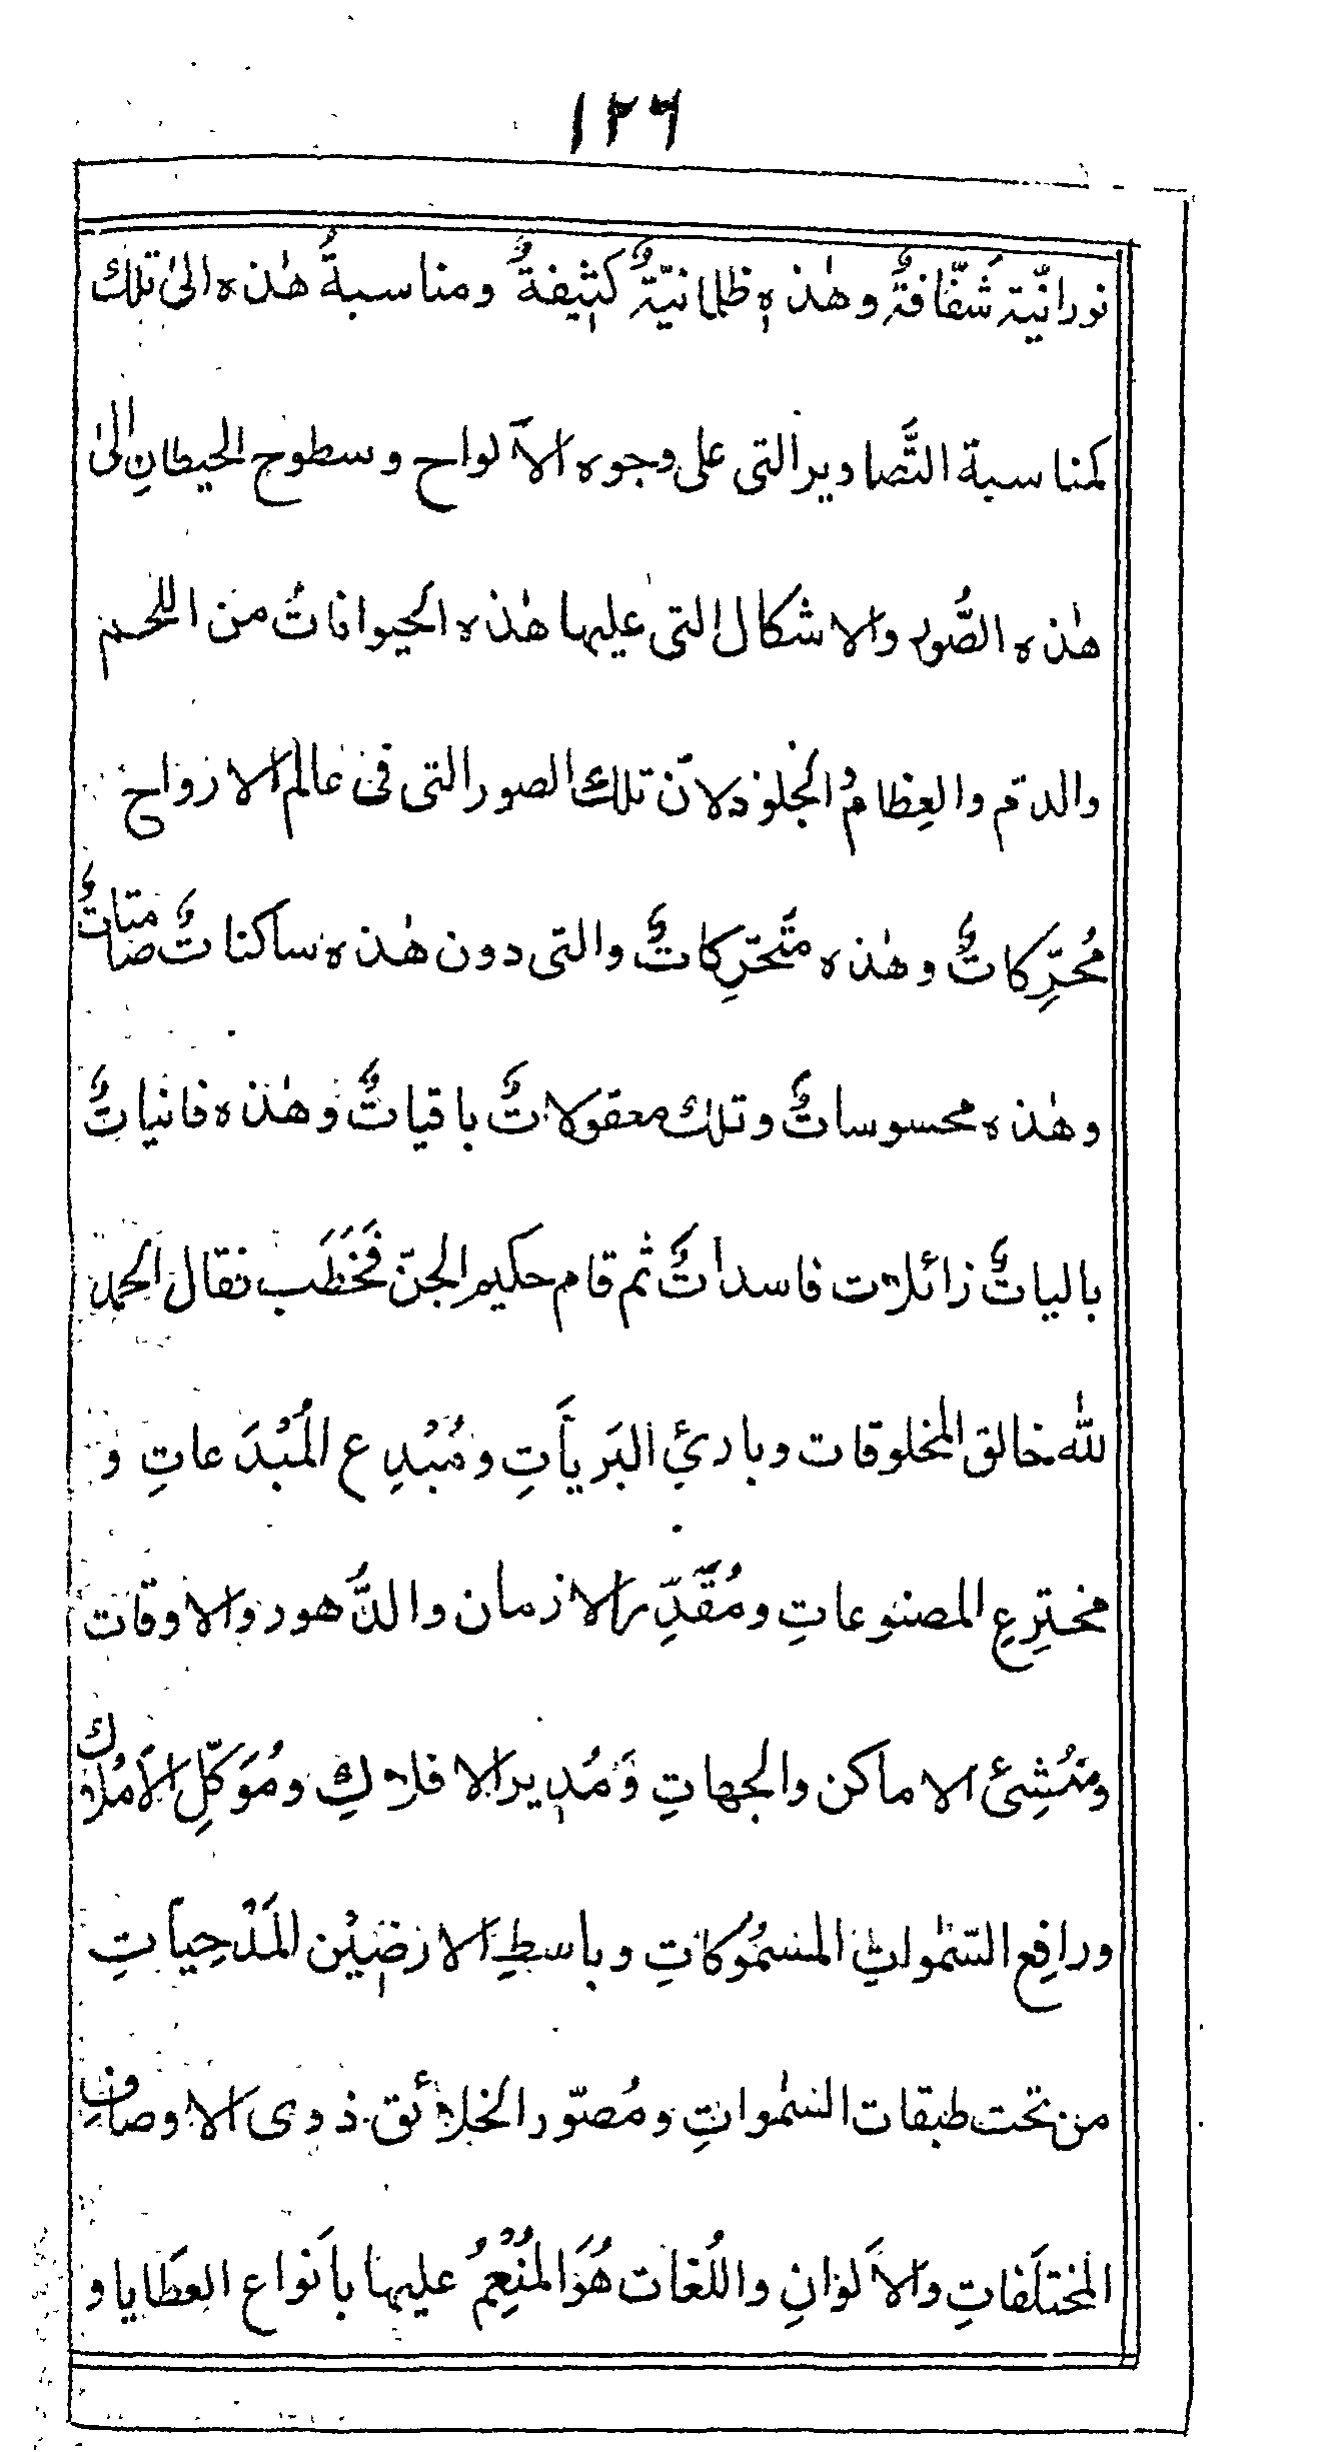 ١٢٦
نورانيّة شَفَّافةٌ وهٰذه ظلمانيّةٌ كثيفةٌ ومناسبةُ هٰذه الىٰ تلك
كمناسبة التَّصاوير التى على وجوه الاَلواح وسطوح الحيطانِ الىٰ
هٰذه الصُّور والاشكال التى عليها هٰذه الحيواناتُ من اللحم
والدم والعِظام والجلود لانّ تلك الصور التى فى عالم الارواح
مُحرِّكاتٌ وهٰذه متَحرّكاتٌ والتى دون هٰذه ساكناتٌ صامتاتٌ
وهٰذه محسوساتٌ وتلك معقولاتٌ باقياتٌ وهٰذه فانياتٌ
بالياتٌ زائلات فاسداتٌ ثم قام حكيم الجنّ فَخَطَب فقال الحمد
للّٰه خالق المخلوقات وبارئ البَريأتِ ومُبْدِع المُبْدَعاتِ و
مخترِعِ المصنوعاتِ ومُقَدِّر الازمان والدُّهور والاوقات
ومُنْشِئ الاماكن والجهاتِ وَمُدير الافلاكِ ومُوَكّلِ الاَملاك
ورافِع السّمٰواتِ المسمُوكاتِ وباسطِ الارضيْن المَدْحِياتِ
من تحت طبقات السّمٰواتِ ومُصوّر الخلائق ذوى الاوصافِ
المختلَفاتِ والاَلوانِ واللُغات هُوَ المُنْعِمُ عليها باَنواع العطَايا و